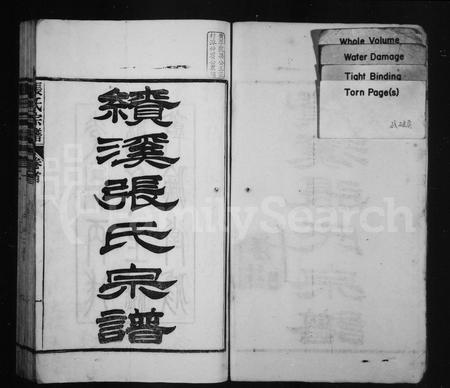 績溪張氏宗譜
張氏宗譜
Whole Volume
Water Damage
Tight Binding
Torn Page(s)
FamilySearch